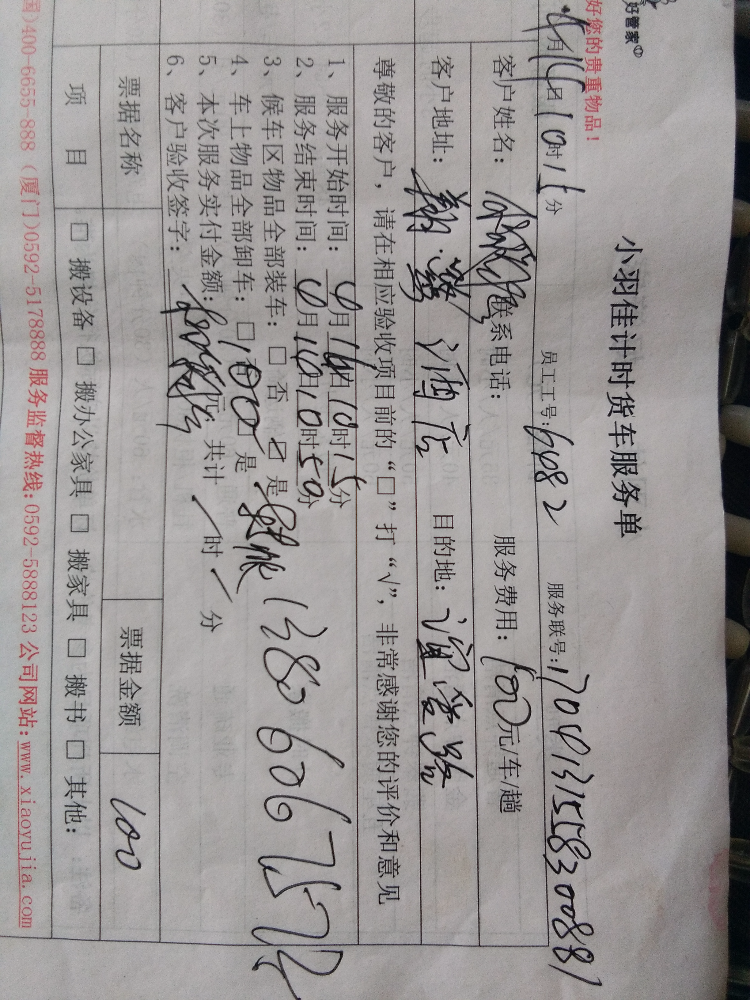 好管家
好您的贵重物品!
小羽佳计时货车服务单
员工工号: 6482 服务联号: 1704131558300881
4月14日10时15分
客户姓名: 联系电话: 服务费用: 100元/车/趟
客户地址: 酒店 目的地: 路
尊敬的客户,请在相应验收项目前的“□”打“√”,非常感谢您的评价和意见
1、服务开始时间: 4月14日10时15分
2、服务结束时间: 4月14日10时50分
3、候车区物品全部装车: □ 否 ☑ 是
4、车上物品全部卸车: □ 否 □ 是
5、本次服务实付金额: 100元 共计 / 时 / 分
6、客户验收签字:
票据名称 票据金额 100
项 目 □ 搬设备 □ 搬办公家具 □ 搬家具 □ 搬书 □ 其他:
国)400-6655-888 (厦门)0592-5178888 服务监督热线:0592-5888123 公司网站:www.xiaoyujia.com